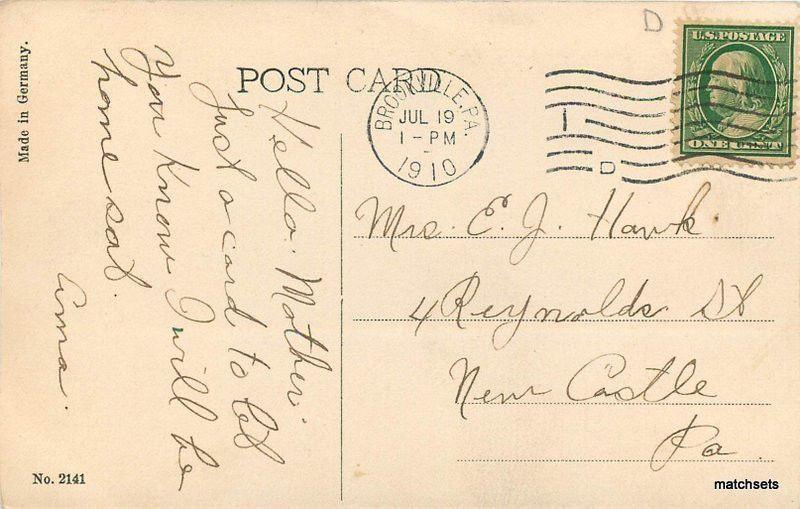 D
U.S. POSTAGE
ONE CENT
POST CARD
BROOKVILLE, PA.
JUL 19
1 - PM
1910
I
D
Made in Germany.
Hello. Mother.
Just a card to let
You Know I will be
home sat.
Mrs. E. J. Hawk
4 Reynolds St
New Castle
Pa.
No. 2141
matchsets